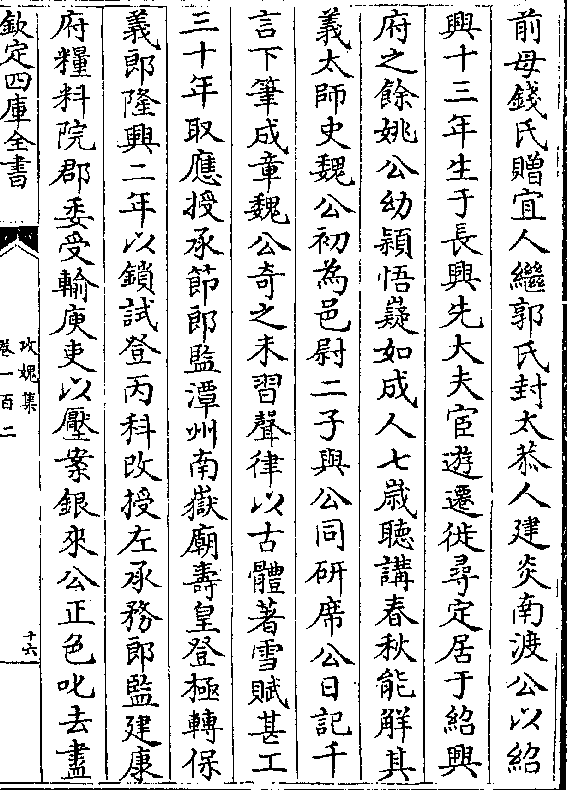 前母錢氏贈宜人繼郭氏封太恭人建炎南渡公以紹
興十三年生于長興先大夫宦遊遷徙尋定居于紹興
府之餘姚公幼穎悟嶷如成人七歲聽講春秋能解其
義太師史魏公初為邑尉二子與公同研席公日記千
言下筆成章魏公奇之未習聲律以古體著雪賦甚工
三十年取應授承節郎監潭州南嶽廟壽皇登極轉保
義郎隆興二年以鎖試登丙科改授左承務郎監建康
府糧料院郡委受輸庾吏以壓案銀來公正色叱去盡
欽定四庫全書
攻媿集
卷一百二
十六